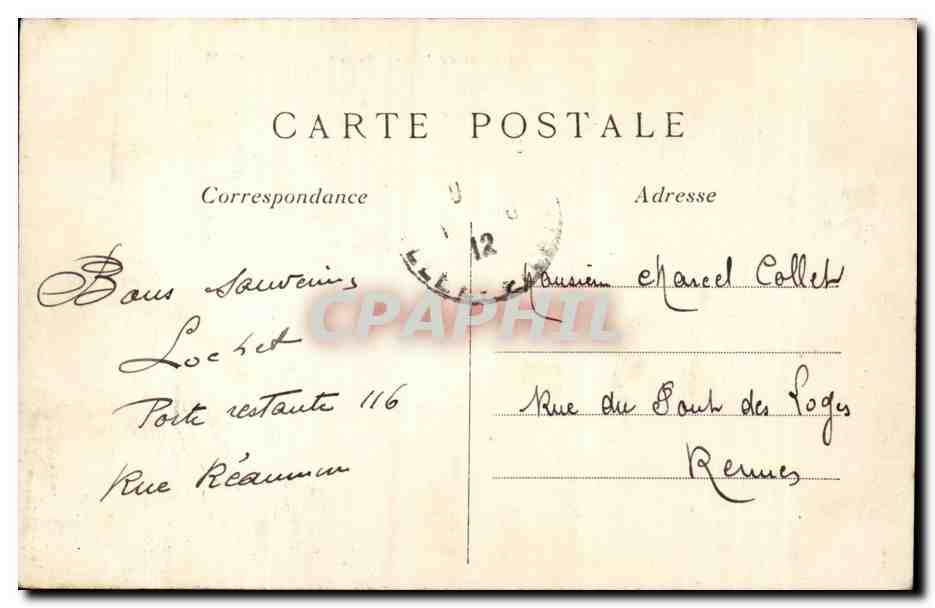 CARTE POSTALE
Correspondance
Adresse
12
Bons souvenirs
Lochet
Poste restante 116
Rue Réaumur
Monsieur Marcel Collet
Rue du Pont des Loges
Rennes
CPAPHIL